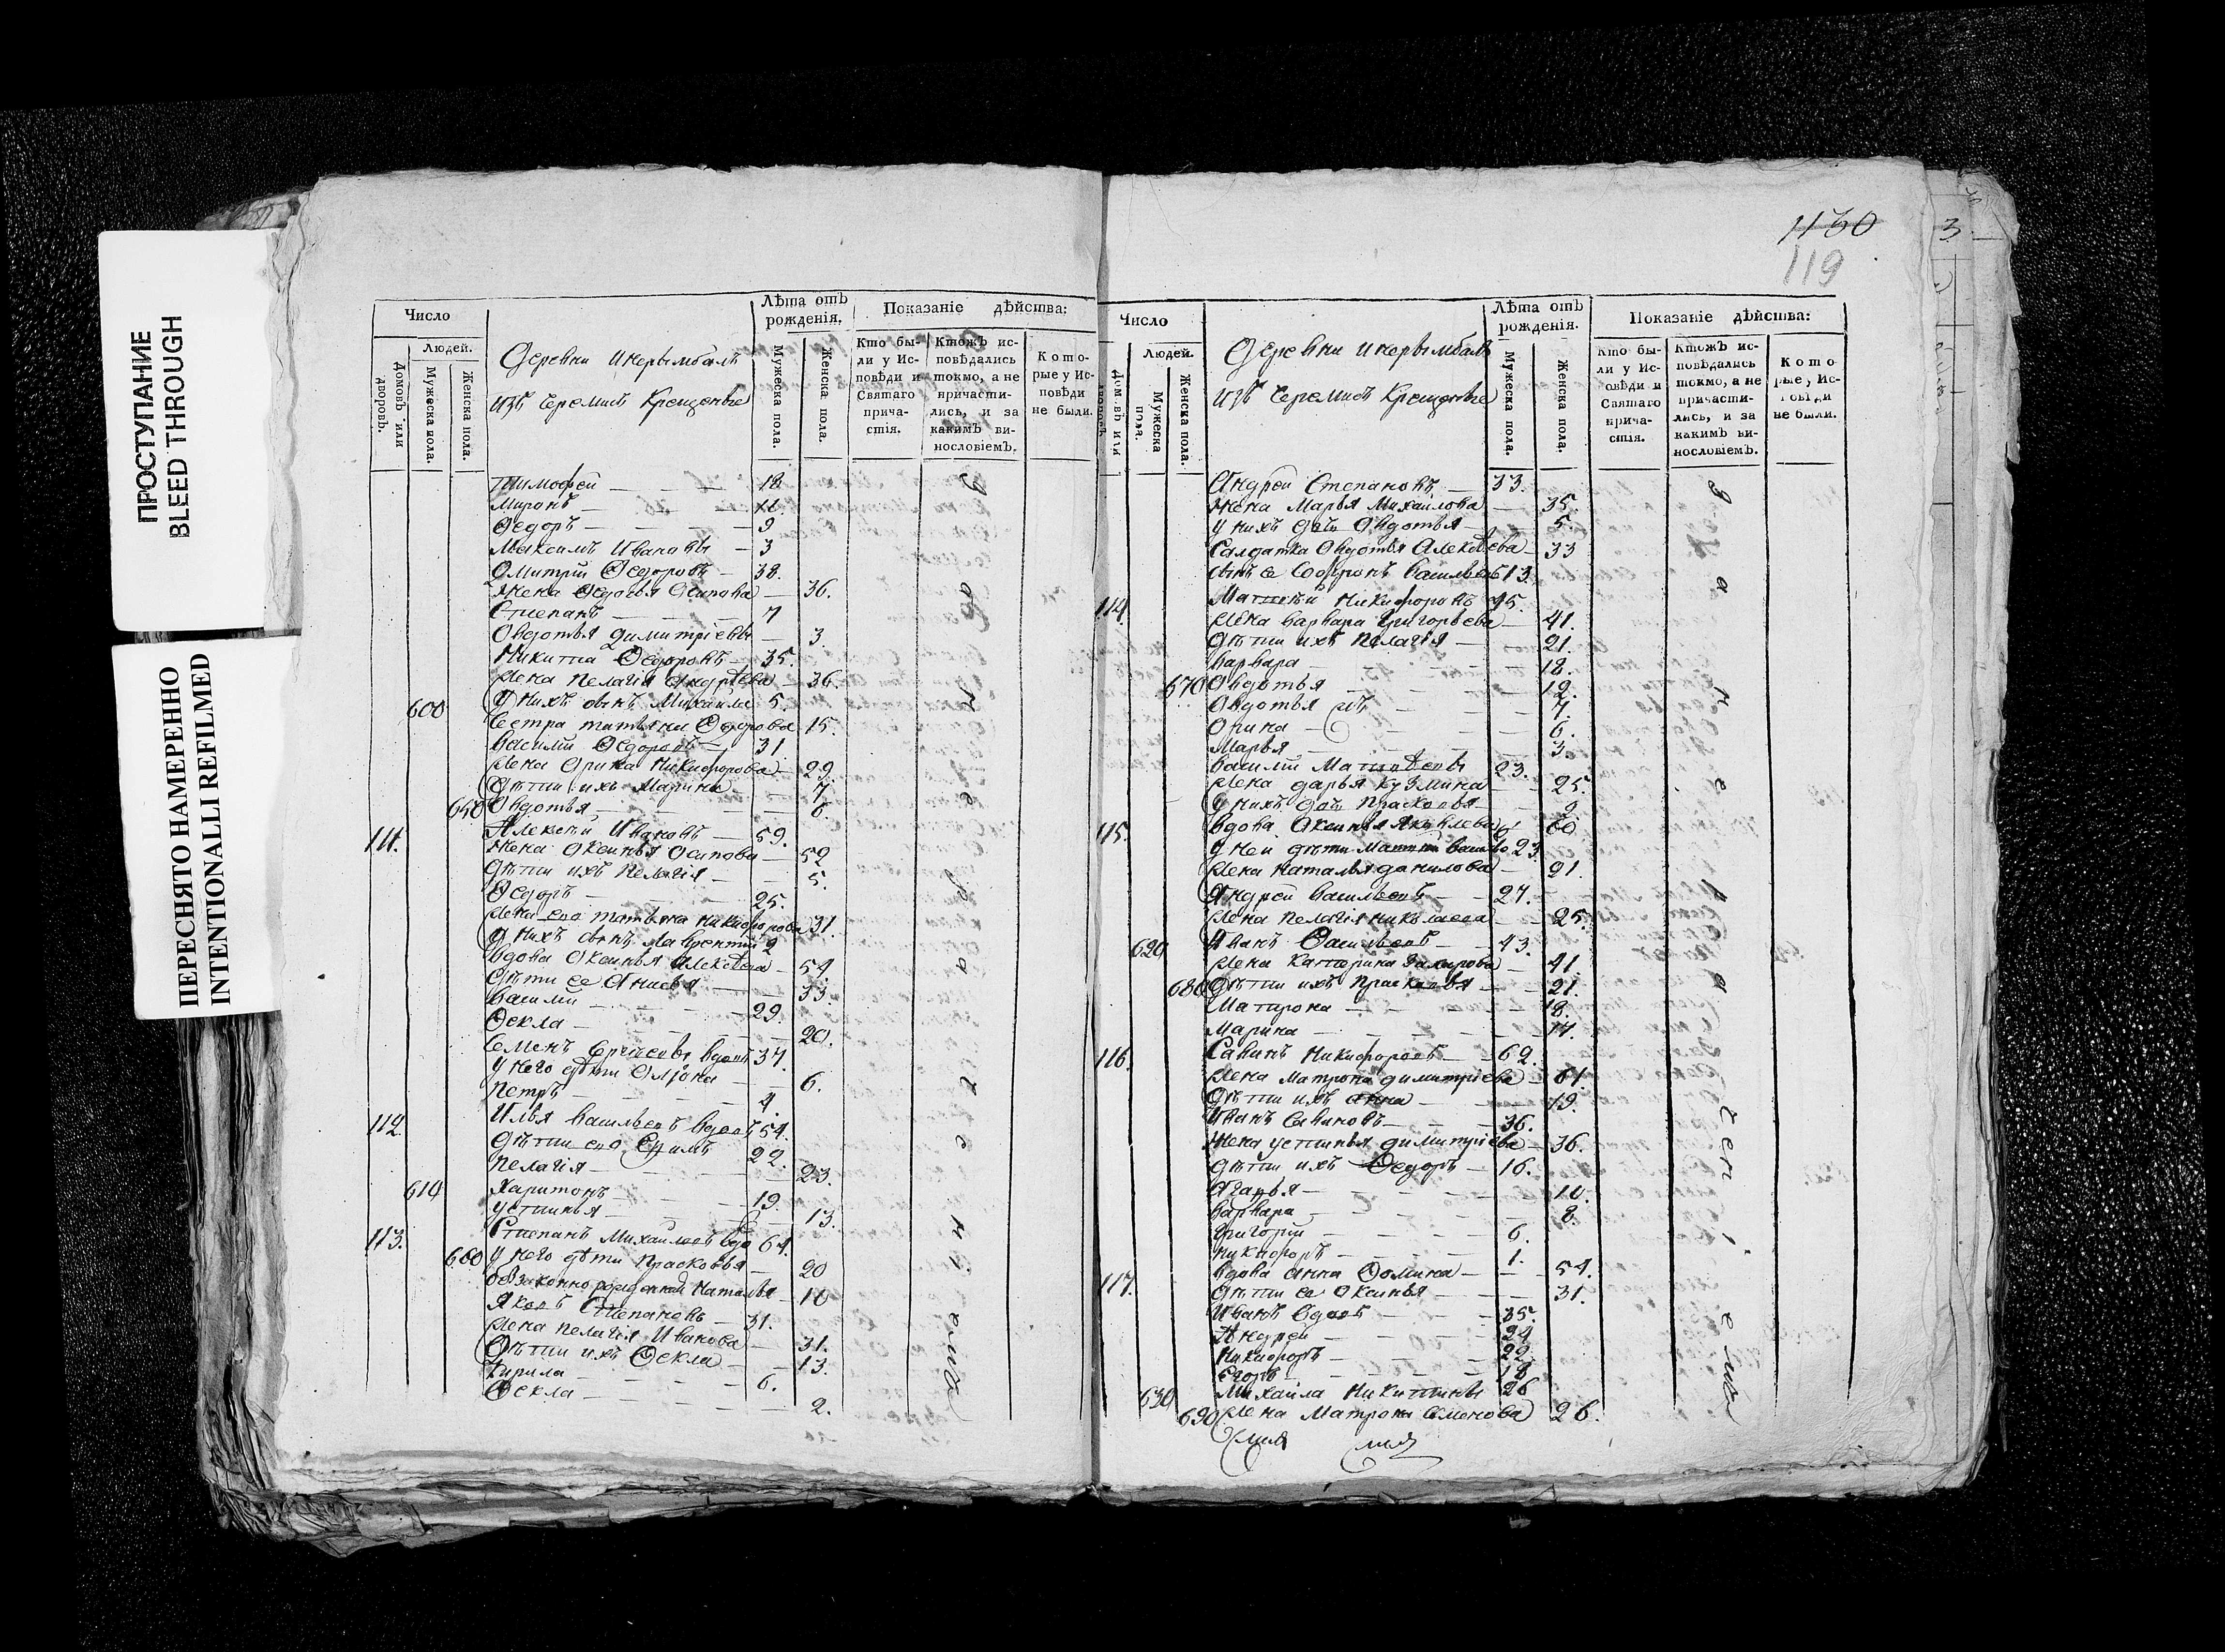 ПРОСТУПАНИЕ
BLEED THROUGH
ПЕРЕСНЯТО НАМЕРЕННО
INTENTIONALLI REFILMED
Число
Людей.
Домовъ или дворовъ.
Мужеска пола.
Женска пола.
Деревни
изъ Черемисъ Крещеные
Лѣта отъ рожденія.
Мужеска пола.
Женска пола.
Показаніе дѣйства:
Кто были у Исповѣди и Святаго причастія.
Ктожъ исповѣдались токмо, а не причастились, и за какимъ винословіемъ.
Которые у Исповѣди не были.
Тимофей 18
Миронъ 11
Ѳедоръ 9
Максимъ Ивановы 3
Дмитрій Ѳедоровъ 38.
Жена Ѳедосья Осипова 36.
Степанъ 7
Овдотья Димитріевы 3.
Никита Ѳедоровъ 35.
Жена Пелагія Андрѣева 36.
600 У нихъ сынъ Михайла 5.
Сестра Татьяна Ѳедорова 15.
Василій Ѳедоровъ 31
Жена Орина Никифорова 29
Дѣти ихъ Марина 7
650 Овдотья 6.
111. Алексѣй Ивановъ 59.
Жена Оксинья Осипова 52
Дѣти ихъ Пелагія 5.
Ѳедоръ 25.
Жена его Татьяна Никифорова 31.
У нихъ сынъ Лаврентій 2
Вдова Оксинья Алексѣева 54
Дѣти ее Анисья 33
Василій 29.
Ѳекла 20.
Семенъ Сергѣевъ вдовъ 37.
У него дѣти 6.
Петръ 4.
112. Илья Васильевъ вдовъ 54.
Дѣти его Ефимъ 22.
Пелагія 23.
610 Харитонъ 19.
Устинья 13.
113. Степанъ Михайловъ вдо 64.
660 У него дѣти Прасковья 20
Наталья 10
Яковъ Степановъ 31.
Жена Пелагія Иванова 31.
Дѣти ихъ Ѳекла 13.
Кирила 6.
Ѳекла 2.
1130
119
Число
Людей.
Мужеска пола.
Женска пола.
Деревни
изъ Черемисъ Крещеные
Лѣта отъ рожденія.
Мужеска пола.
Женска пола.
Показаніе дѣйства:
Кто были у Исповѣди и Святаго причастія.
Ктожъ исповѣдались токмо, а не причастились, и за какимъ винословіемъ.
Которые, Исповѣди не были.
Андрей Степановъ 33.
Жена Марья Михайлова 35.
У нихъ дочь Овдотья 5.
Салдатка Овдотья Алексѣева 33
Сынъ ее Софронъ Васильевъ 13.
114. Матвѣй Никифоровъ 45.
Жена Варвара Григорьева 41.
Дѣти ихъ Пелагія 21.
Варвара 18.
670 Овдотья 12.
Овдотья 7.
Орина 6.
Марья 3.
Василій Матвѣевъ 23.
Жена Дарья Кузмина 25.
У нихъ дочь Прасковья 2
115. Вдова Оксинья Яковлева 60
У ней дѣти Матвѣй 23.
Жена Наталья Данилова 21.
Андрей Васильевъ 27.
Жена Пелагія Николаева 25.
620 Иванъ Васильевъ 43.
Жена Катерина Захарова 41.
680 Дѣти ихъ Прасковья 21.
Матрона 18.
Марина 17.
116. Савинъ Никифоровъ 62.
Жена Матрона Димитріева 61.
Дѣти ихъ Анна 19.
Иванъ Савиновъ 36.
Жена Устинья Димитріева 36.
Дѣти ихъ Ѳедоръ 16.
Агафья 10.
Варвара 8.
Григорій 6.
Никифоръ 1.
117. Вдова Анна Ѳомина 54.
Дѣти ее Оксинья 31.
Иванъ вдовъ 35.
Андрей 24
Никифоръ 22
Егоръ 18
630 Михайла Никитинъ 26
690 Жена Матрона Семенова 26.